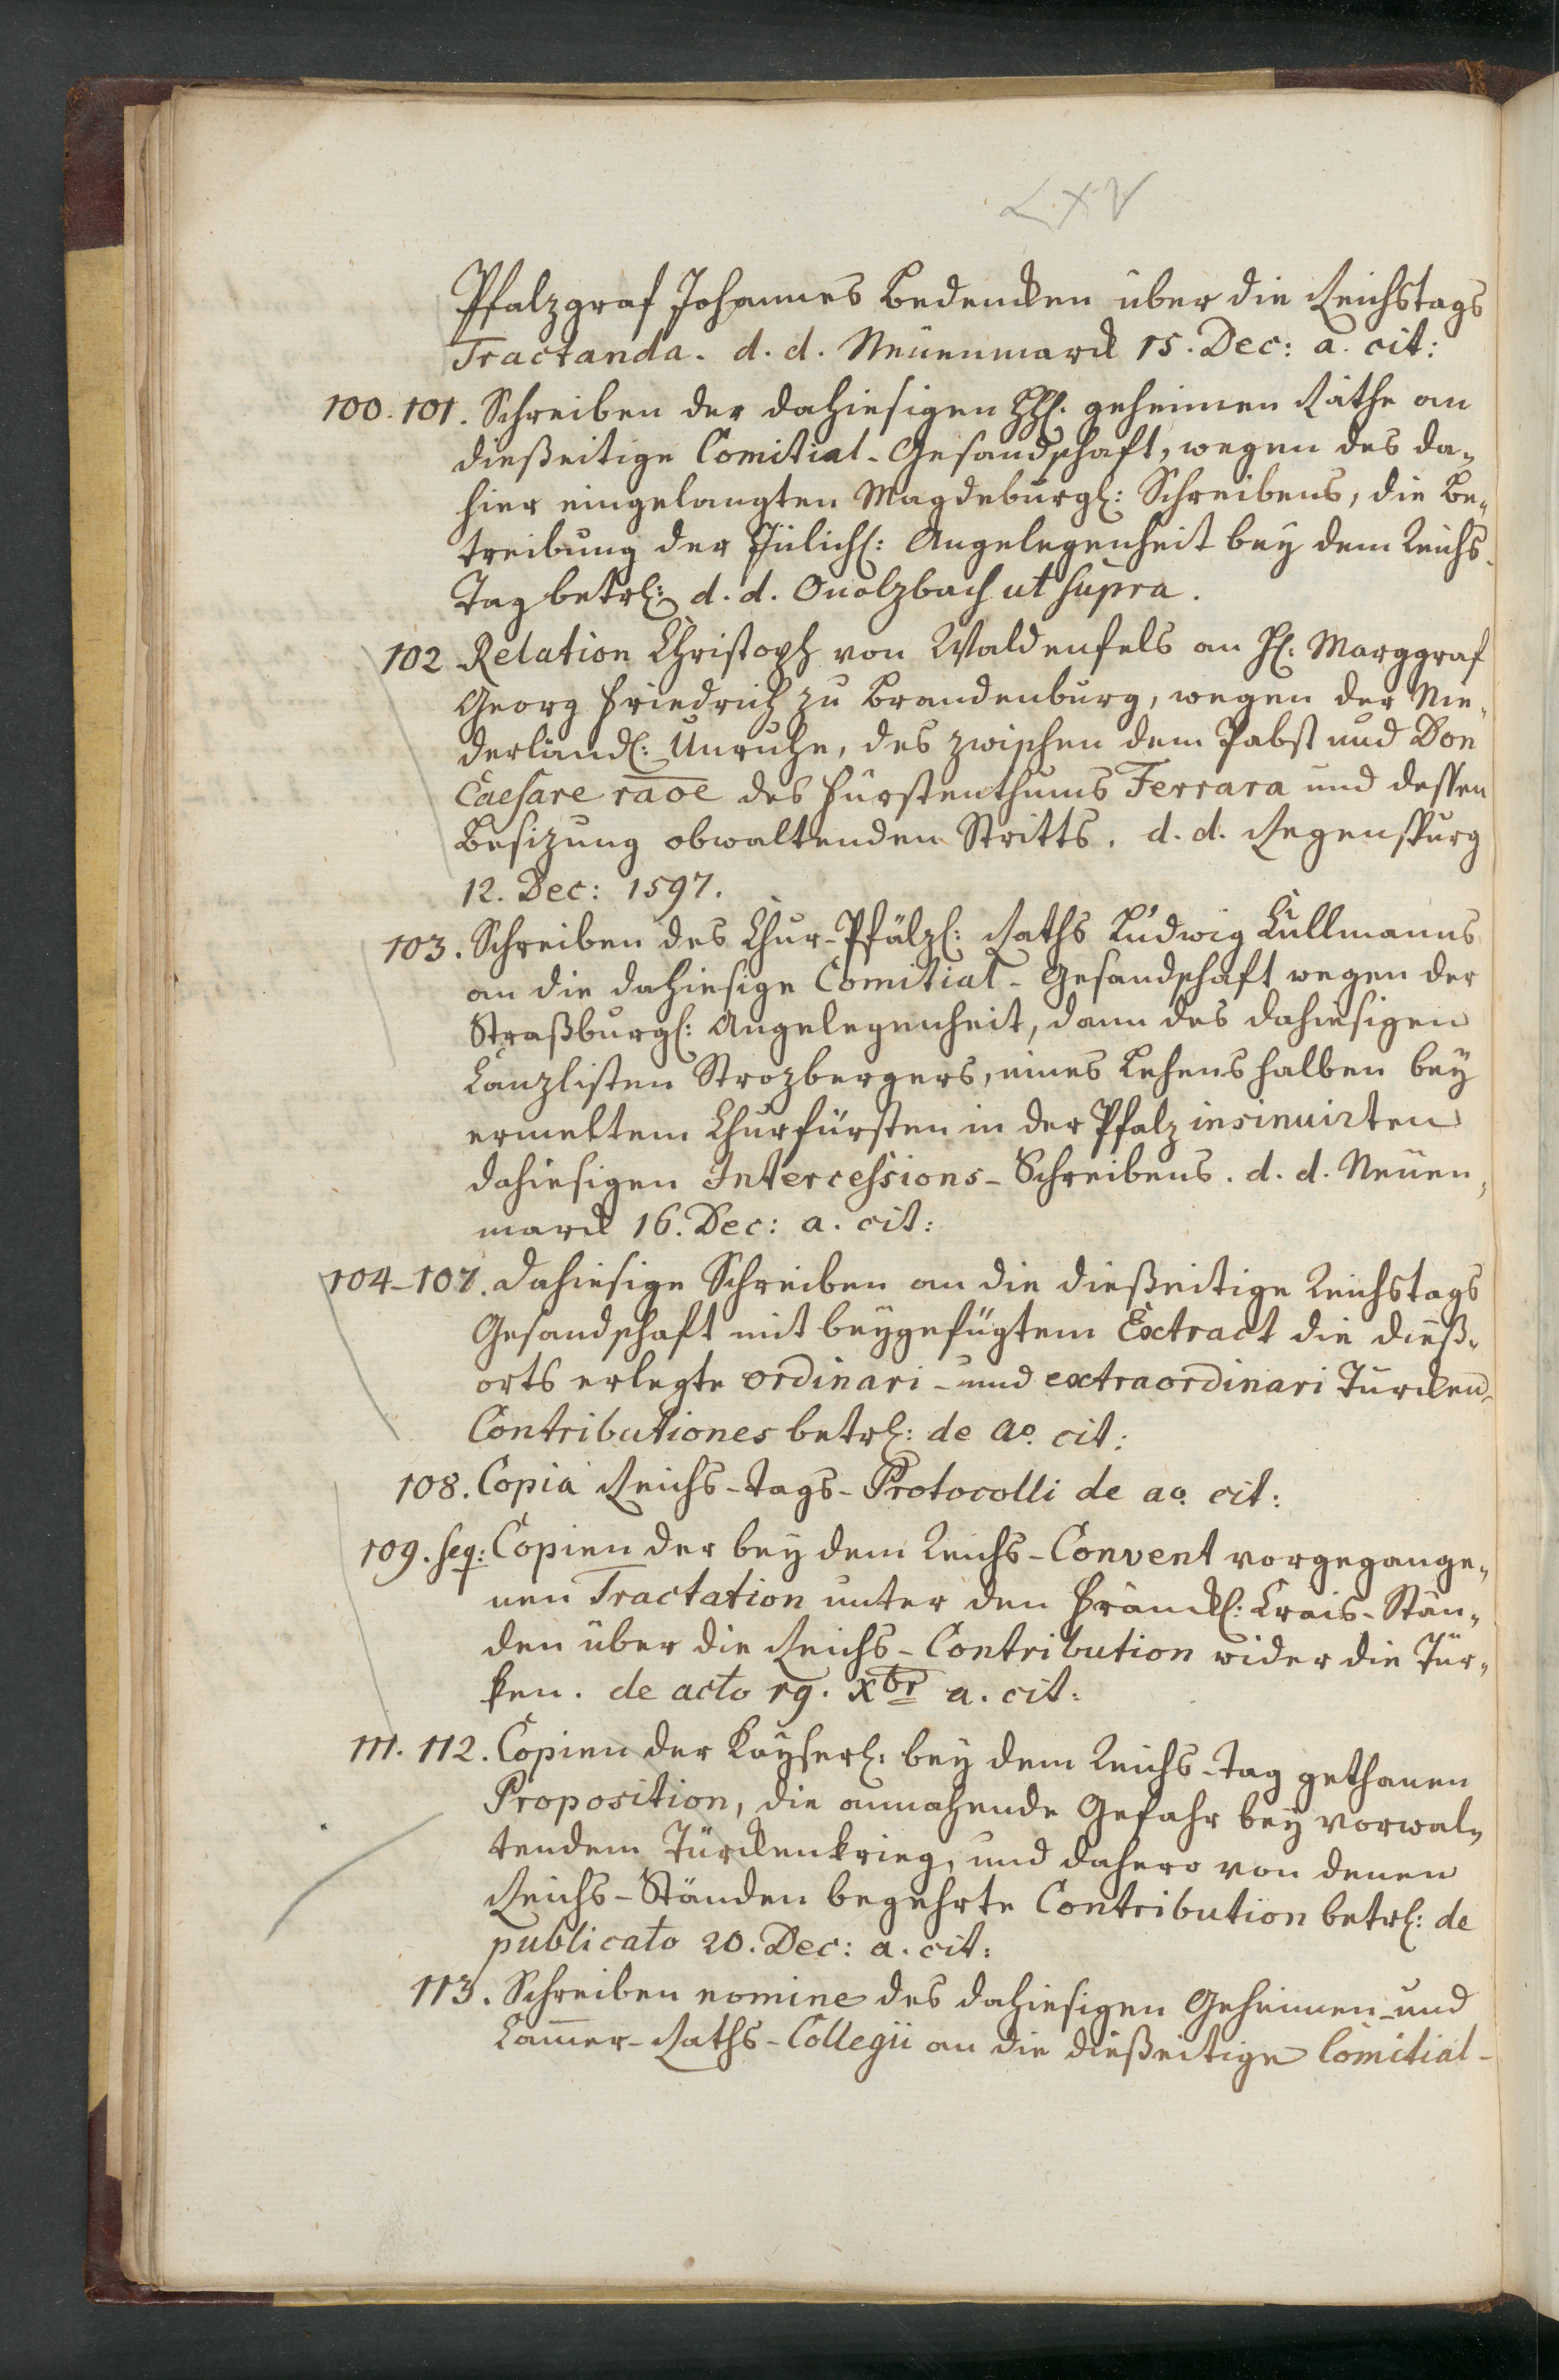 LXV
Pfalzgraf Johannes Bedencken über die Reichstags
Tractanda. d. d. Neüenmarck 15. Dec: a. cit:
100. 101. Schreiben der dahiesigen HH. geheimen Räthe an
dießeitige Comitial-Gesandschaft, wegen des da-
hier eingelangten Magdeburgl: Schreibens, die Be-
treibung der Jülichl: Angelegenheit bey dem Reichs-
Tag betrl: d. d. Onolzbach ut supra.
102 Relation Christoph von Waldenfels an H: Marggraf
Georg Friedrich zu Brandenburg, wegen der Nie-
derländl: Unruhe, des zwischen dem Pabst und Don
Caesare raoe des Fürstenthums Ferrara und dessen
Besizung obwaltenden Stritts. d. d. Regenspurg
12. Dec: 1597.
103. Schreiben des Chur-Pfälzl: Raths Ludwig Cullmanns
an die dahiesige Comitial-Gesandschaft wegen der
Straßburgl: Angelegenheit, dann des dahiesigen
Canzlisten Strozbergers, eines Lehens halben bey
ermeltem Churfürsten in der Pfalz insinuirten
dahiesigen Intercessions-Schreibens. d. d. Neüen-
marck 16. Dec: a. cit:
104-107. Dahiesige Schreiben an die dießeitige Reichstags
Gesandschaft mit beygefügtem Extract die dieß-
orts erlegte ordinari- und extraordinari Türcken-
Contributiones betrl: de ao. cit:
108. Copia Reichs-Tags-Protocolli de ao. cit:
109. seq: Copien der bey dem Reichs-Convent vorgegange-
nen Tractation unter den Fränckl: Crais-Stän-
den über die Reichs-Contribution wider die Tür-
ken. de acto 19. Xbr a. cit:
111. 112. Copien der Kayserl: bey dem Reichs-Tag gethanen
Proposition, die annahende Gefahr bey vorwal-
tendem Türckenkrieg, und dahero von denen
Reichs-Ständen begehrte Contribution betrl: de
publicato 20. Dec: a. cit:
113. Schreiben nomine des dahiesigen Geheimen- und
Cam̄er-Raths-Collegii an die dießeitige Comitial-